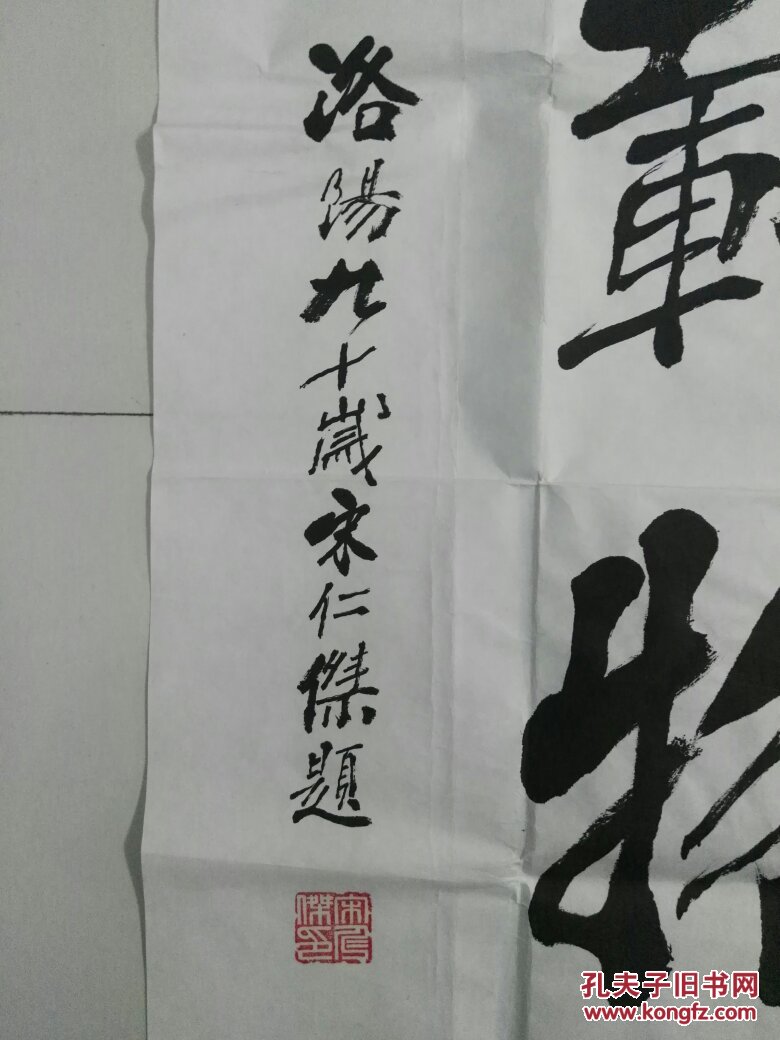 洛陽九十歲宋仁傑題
宋仁傑印
孔夫子旧书网
www.kongfz.com